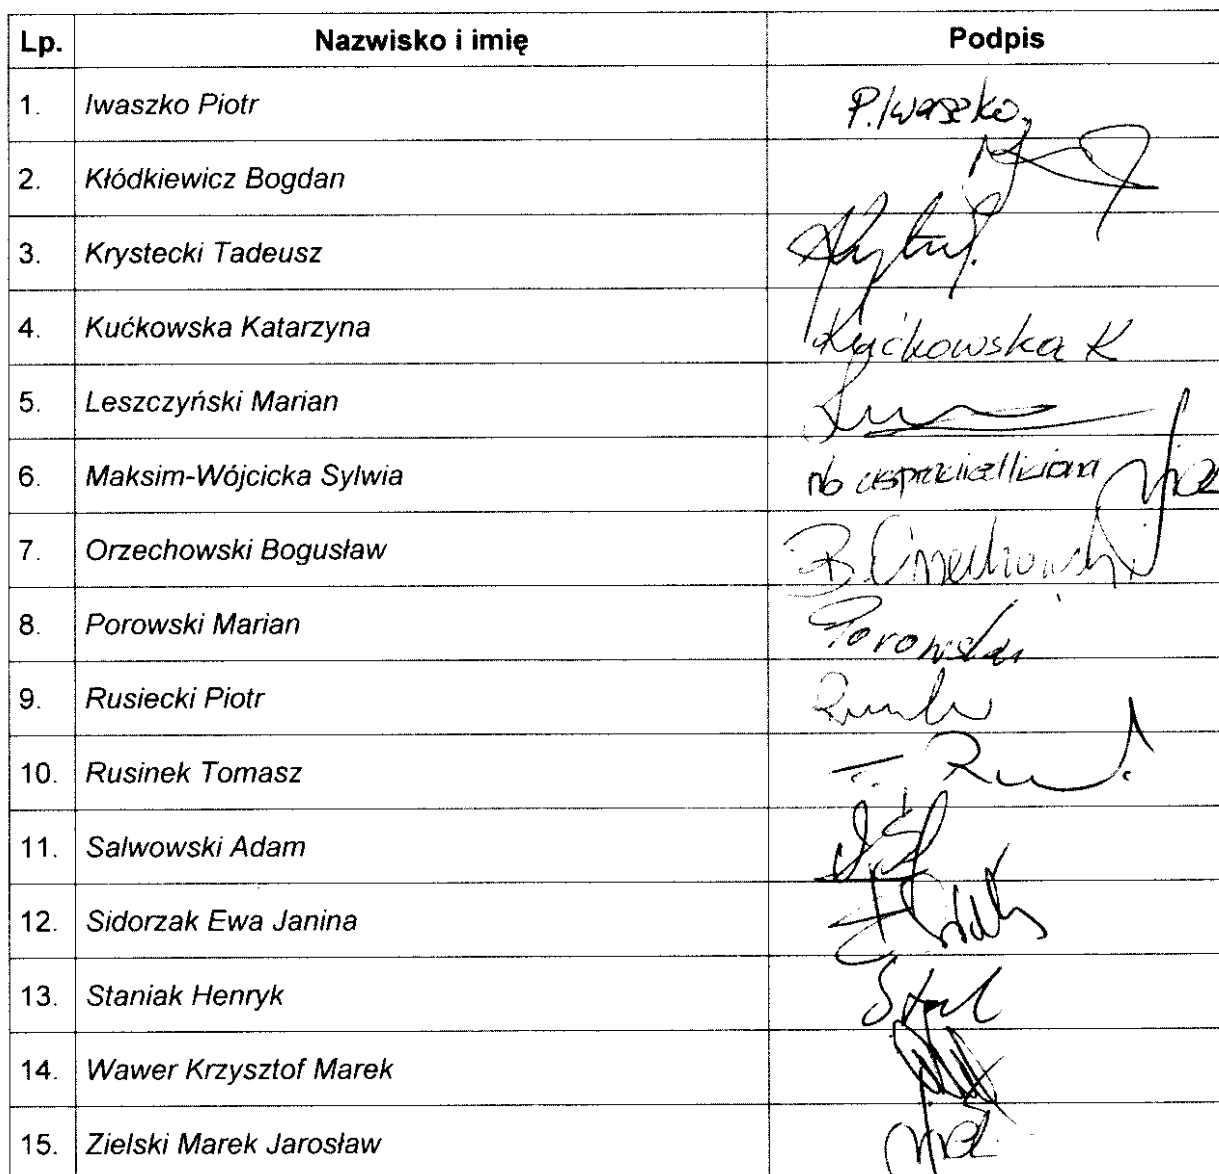 Lp. Nazwisko i imię Podpis
1. Iwaszko Piotr P.Iwaszko.
2. Kłódkiewicz Bogdan
3. Krystecki Tadeusz
4. Kućkowska Katarzyna Kućkowska K
5. Leszczyński Marian
6. Maksim-Wójcicka Sylwia nb usprawiedliwiona
7. Orzechowski Bogusław B. Orzechowski
8. Porowski Marian Porowski
9. Rusiecki Piotr
10. Rusinek Tomasz
11. Salwowski Adam
12. Sidorzak Ewa Janina
13. Staniak Henryk
14. Wawer Krzysztof Marek
15. Zielski Marek Jarosław